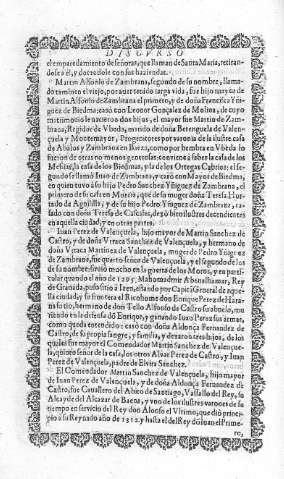 DISCVRSO
el emparedamiento de señoras, que llaman de Santa Maria, retirandose
se à èl, y dotandole con sus haziendas.
Martin Alfonso de Zambrana, segundo de su nombre, llamado
tambien el viejo, por auer tenido larga vida, fue hijo mayor de
Martin Alfonso de Zambrana el primero, y de doña Francisca Yñiguez
de Biedma: casò con Leonor Gonçalez de Molina, de cuyo
matrimonio le nacieron dos hijos, el mayor fue Martin de Zambrana,
Regidor de Vbeda, marido de doña Berenguela de Valençuela
y Montemayor, Progenitores por varonia de la ilustre casa
de Abalos y Zambrana en Baeza, como por hembra en Vbeda lo
fueron de otras no menos generosas, conuiene à saber la casa de los
Mesías, la casa de los Biedmas, y la de los Ortegas Cabrios; el segundo
se llamò Iuan de Zambrana, y casò con Mayor de Biedma,
en quien tuuo à su hijo Pedro Sanchez Yñiguez de Zambrana, el
primero desta casa en Murcia, que de su muger doña Teresa Hurtado
de Agosillo, y de su hijo Pedro Yñiguez de Zambrana, casado
con doña Teresa de Cascales, dexò otros ilustres decendientes
en aquella ciudad, y en otras partes.
Iuan Perez de Valençuela, hijo mayor de Martin Sanchez de
Castro, y de doña Vrraca Sanchez de Valençuela, y hermano de
doña Vrraca Martinez de Valençuela, muger de Pedro Yñiguez
de Zambrano, fue quarto señor de Valençuela, y el segundo de los
de su nombre: siruiò mucho en la guerra de los Moros, y en particular
quando el año de 1295 Mahomad Mir Abenalhamar, Rey
de Granada, puso sitio à Iren, estando por Capitan General de aquella
ciudad, y su frontera el Ricohome don Enrique Perez de Harana
su tio, hermano de don Tello Alfonso de Castro su abuelo, muriendo
en la defensa dõ Enrique, y guiando Iuan Perez sus armas,
como queda entendido: casò con doña Aldonça Fernandez de
Castro, de su propia sangre, y familia, y dexaron tres hijos, de los
quales fue mayor el Comendador Martin Sanchez de Valençuela,
quinto señor de la casa, los otros Aluar Perez de Castro, y Iuan
Perez de Valençuela, padre de Eluira Sanchez.
El Comendador Martin Sanchez de Valençuela, hijo mayor
de Iuan Perez de Valençuela, y de doña Aldonça Fernandez de
Castro, fue Cauallero del Abito de Santiago, Vassallo del Rey, su
Alcayde del Alcazar de Baena, y vno de los ilustres varones de su
tiempo en seruicio del Rey don Alonso el Vltimo, que diò principio
à su Reynado año de 1312, y hasta el del Rey dõ Iuan el Prime-
ro,